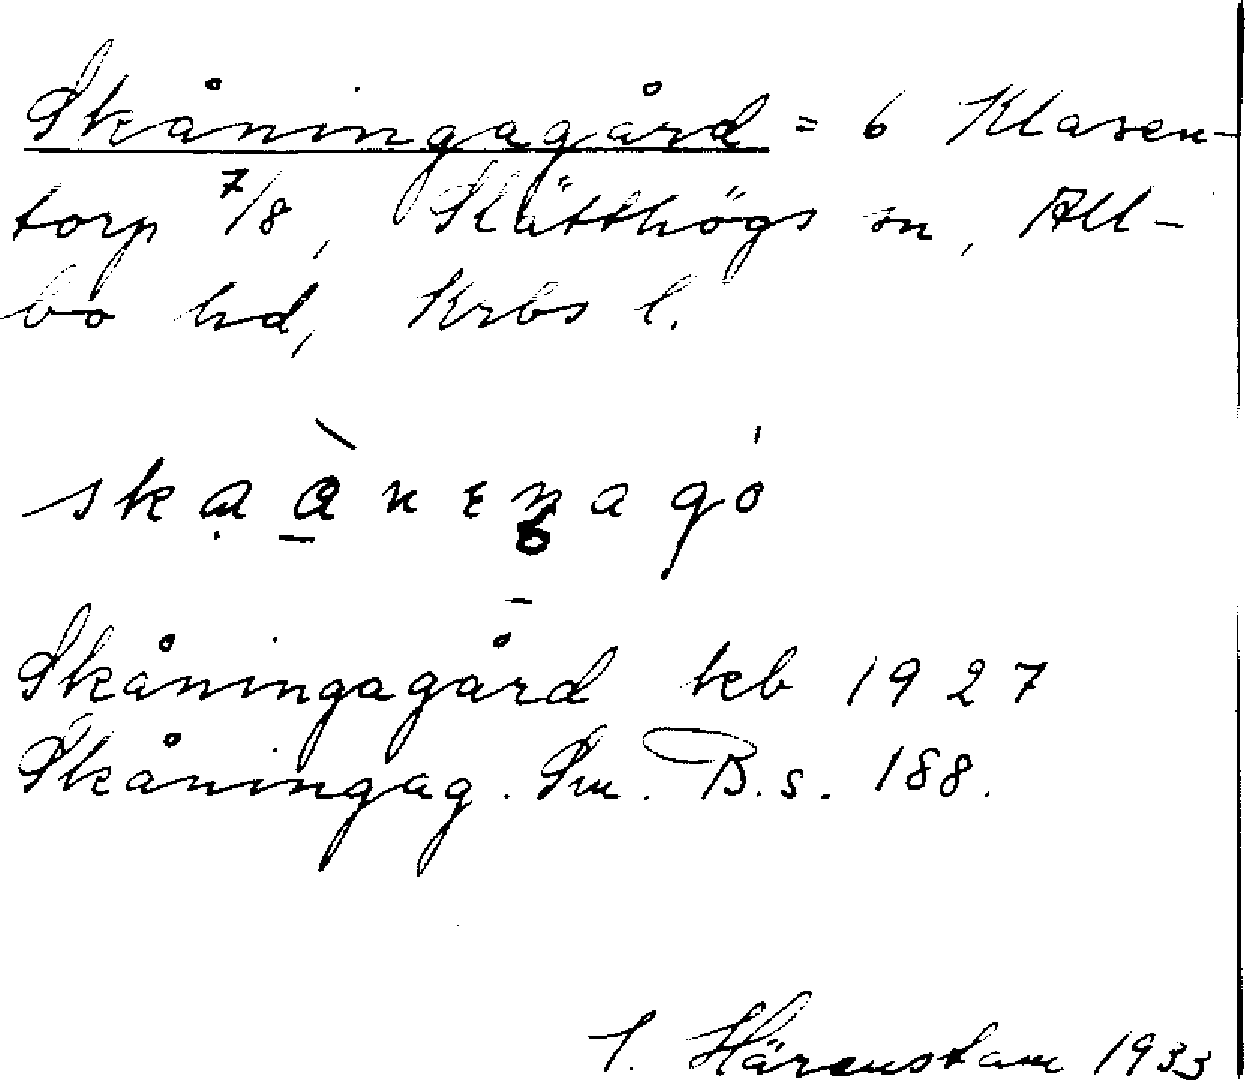 Skåningagård = 6 Klasen-
torp 7/8, Slätthögs sn, All-
bo hd, Krbs l.
Skåningagård kb 1927
Skåningag. Sm. B. s. 188.
I. Härenstam 1933